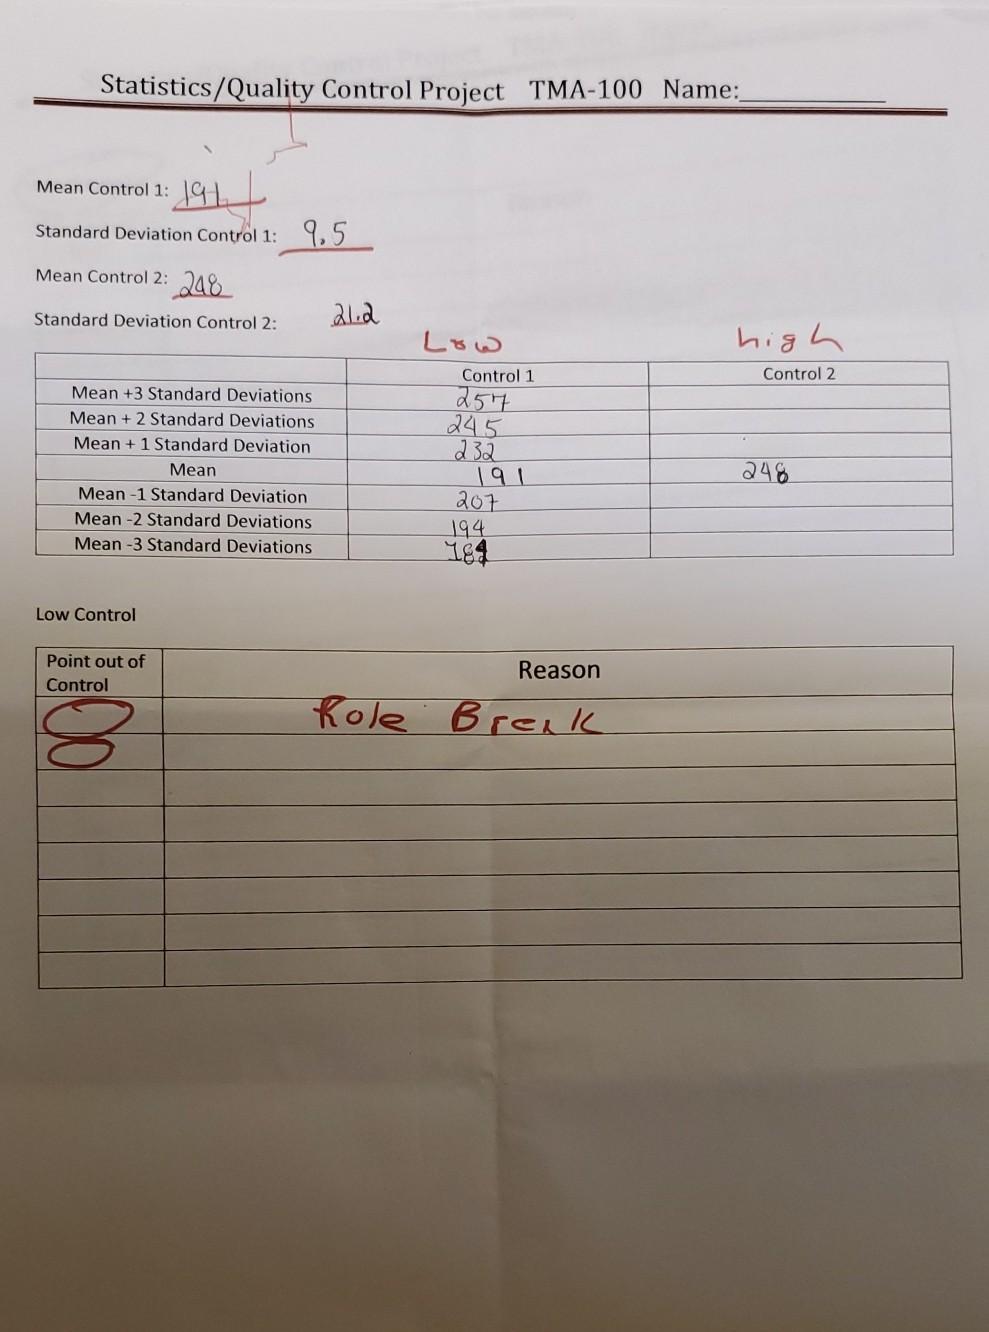 Statistics/Quality Control Project TMA-100 Name:
Mean Control 1: 191
Standard Deviation Control 1: 9.5
Mean Control 2: 248
Standard Deviation Control 2: 21.2
Low high
Control 1 Control 2
Mean +3 Standard Deviations 257
Mean + 2 Standard Deviations 245
Mean + 1 Standard Deviation 232
Mean 191 248
Mean -1 Standard Deviation 207
Mean -2 Standard Deviations 194
Mean -3 Standard Deviations
Low Control
Point out of Control Reason
Role Break